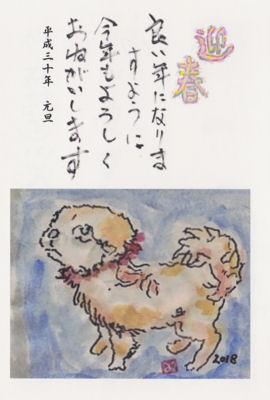 迎春
良い年になりま
すように
今年もよろしく
おねがいします
平成三十年 元旦
2018